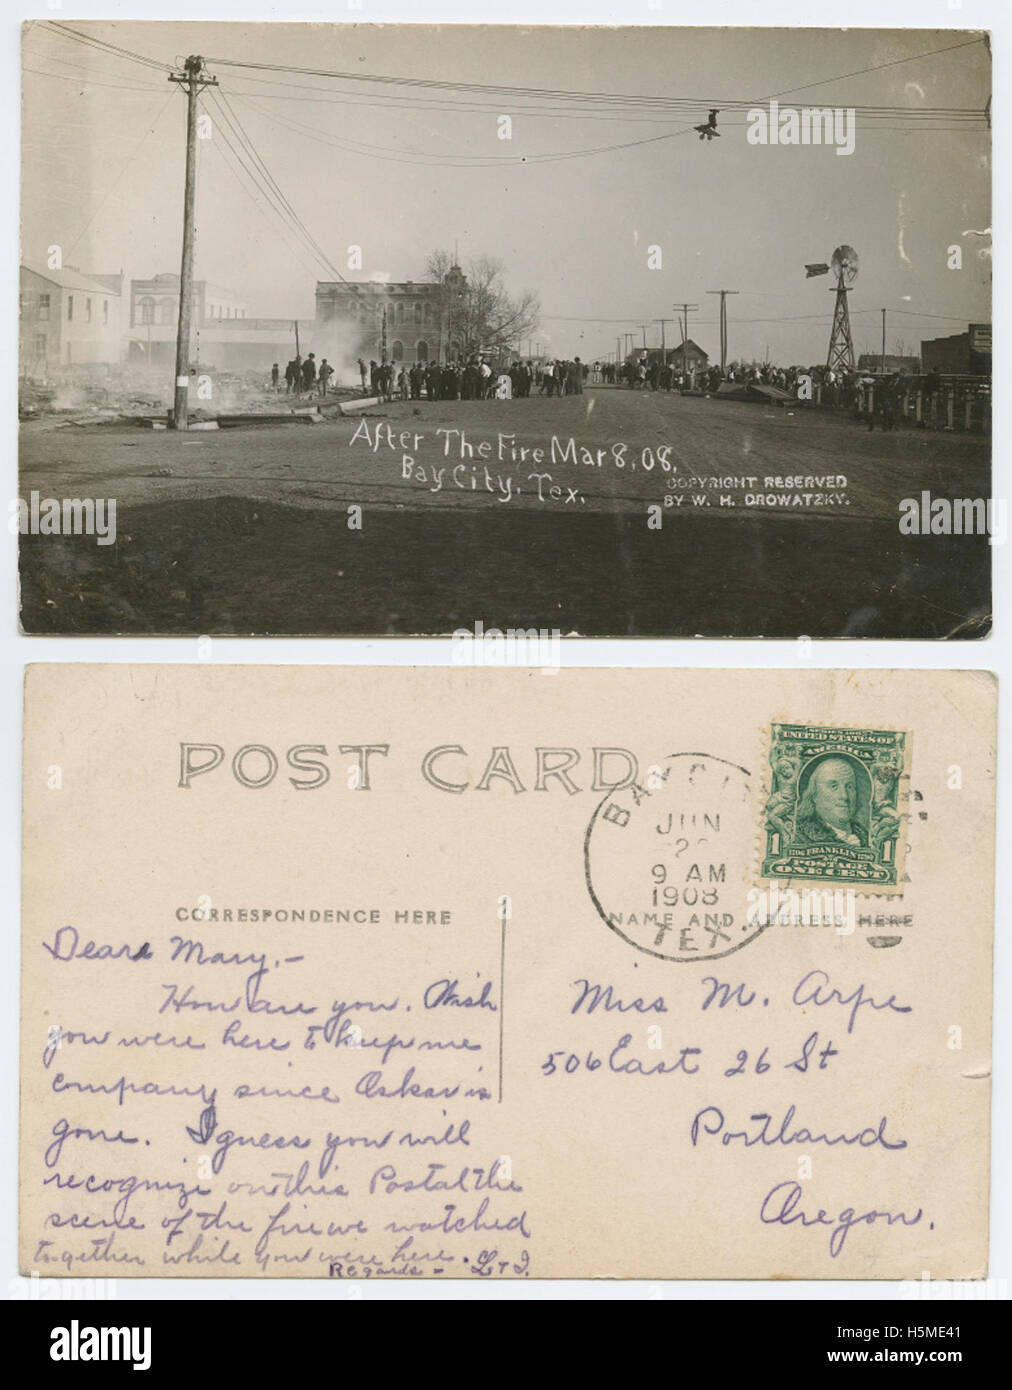 After The Fire Mar 8, 08.
Bay City, Tex.
COPYRIGHT RESERVED
BY W. H. DROWATZKY.
POST CARD
BAY CITY
JUN
9 AM
1908
TEX.
SERIES 1902
UNITED STATES OF
AMERICA
1 1706 FRANKLIN 1790 1
POSTAGE
ONE CENT
CORRESPONDENCE HERE
NAME AND ADDRESS HERE
Dear Mary,-
How are you. Wish
you were here to keep me
company since Oskar is
gone. I guess you will
recognize on this Postal the
scene of the fire we watched
together while you were here.
Regards - L & I.
Miss M. Arpe
506 East 26 St
Portland
Oregon.
alamy stock photo
H5ME41
www.alamy.com